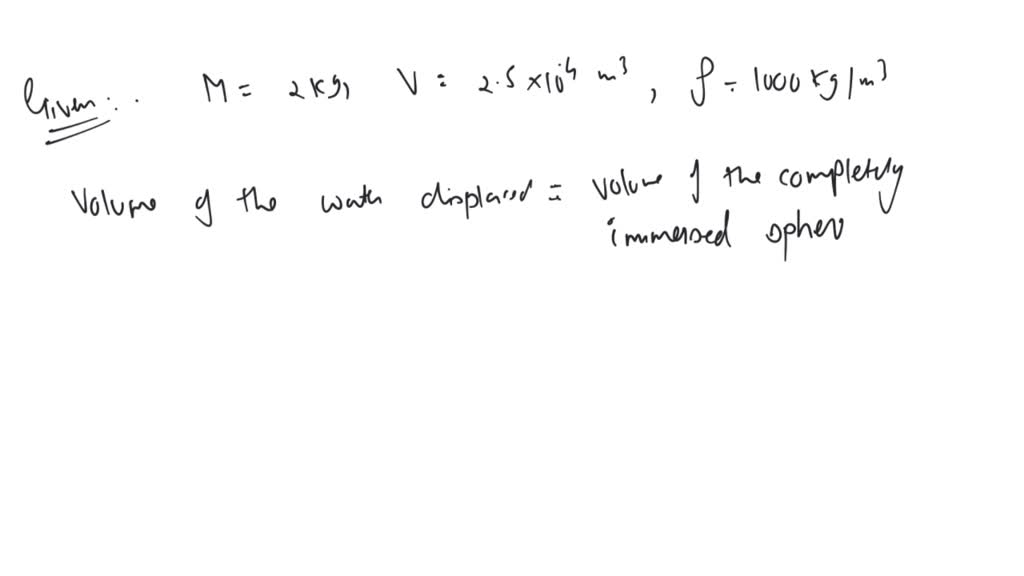 Given:. M = 2 kg, V = 2.5 × 10⁻⁴ m³, ρ = 1000 kg/m³
Volume of the water displaced = volume of the completely
immersed sphere